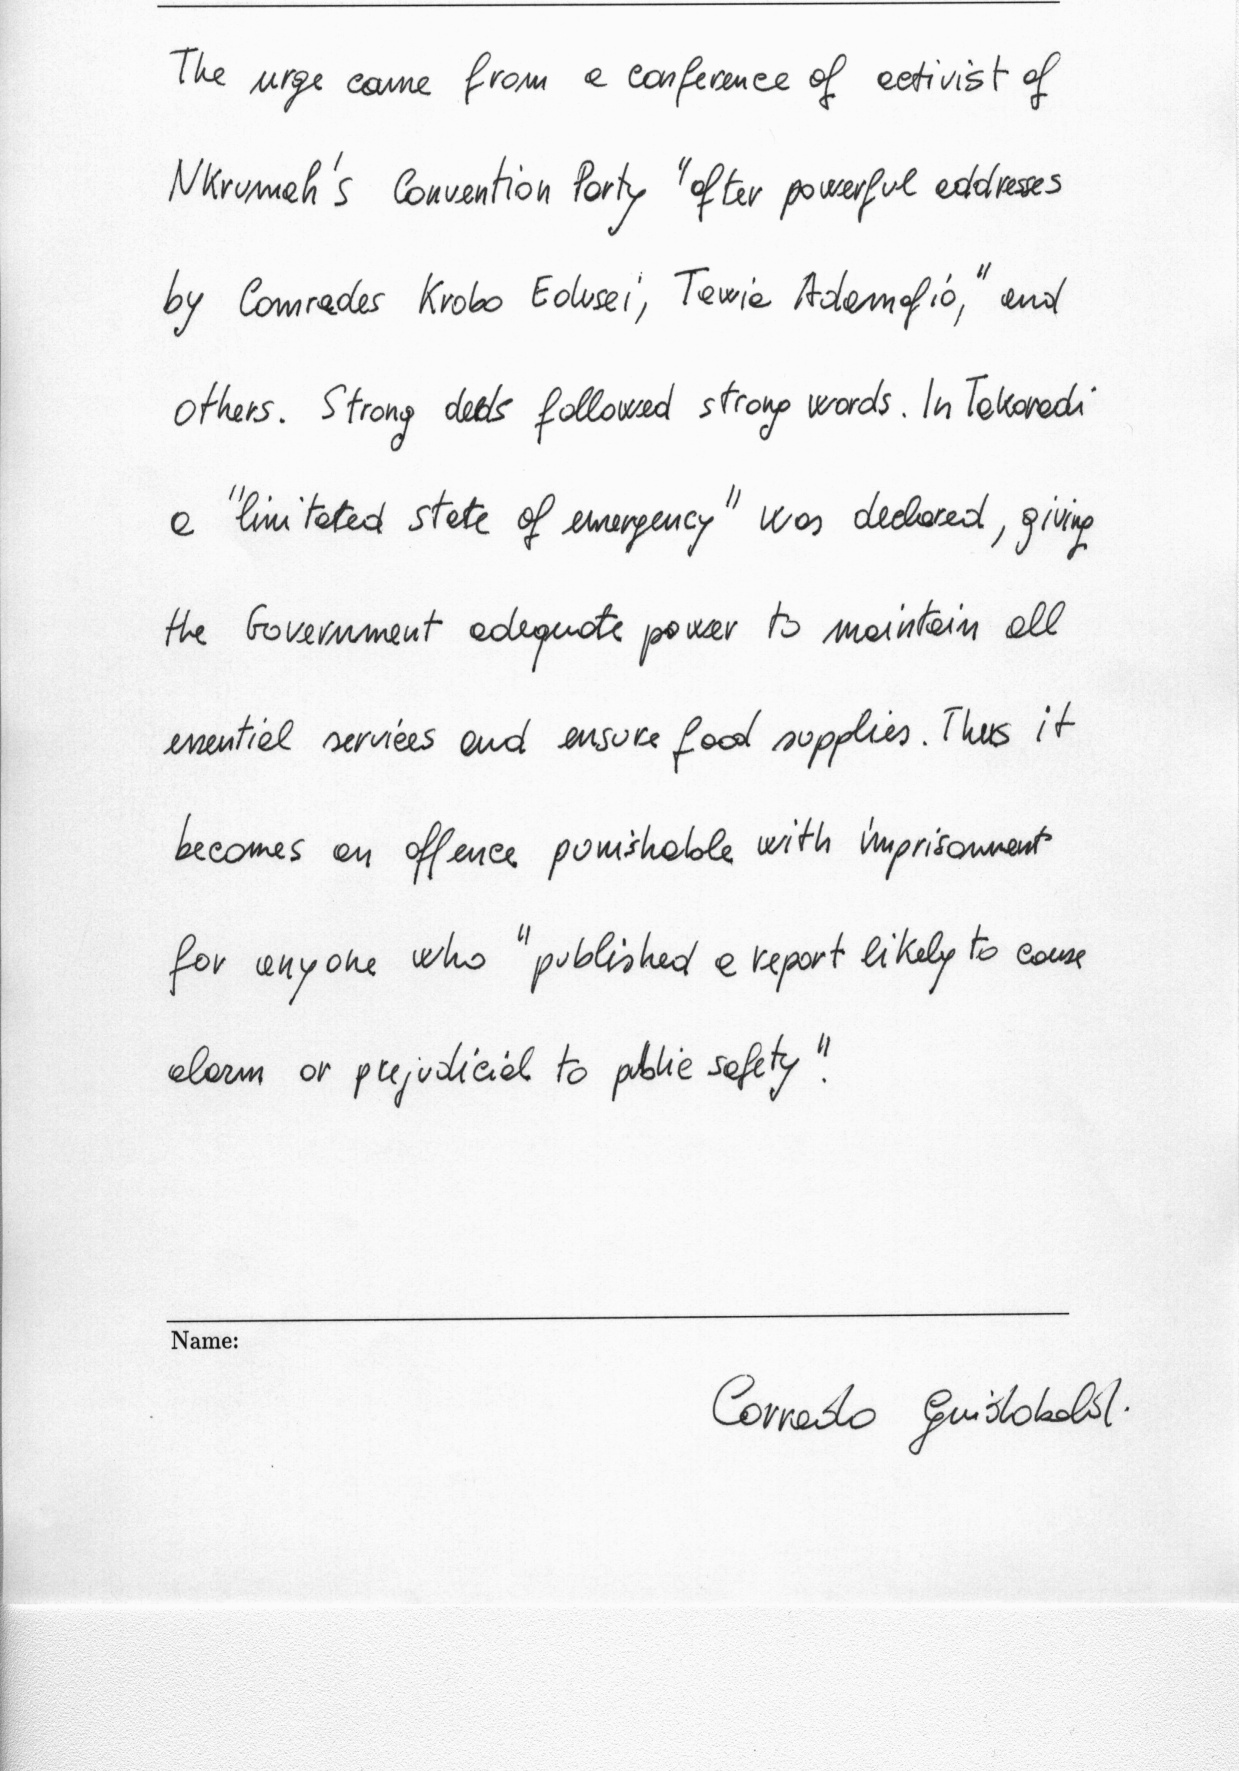 The urge came from a conference of activist of
Nkrumah's Convention Party "after powerful addresses
by Comrades Krobo Edusei, Tawia Adamafio," and
others. Strong deeds followed strong words. In Takoradi
a "limitated state of emergency" was declared, giving
the Government adequate power to maintain all
essential services and ensure food supplies. Thus it
becomes an offence punishable with imprisonment
for anyone who "published a report likely to cause
alarm or prejudicial to public safety".
Name:
Corrado